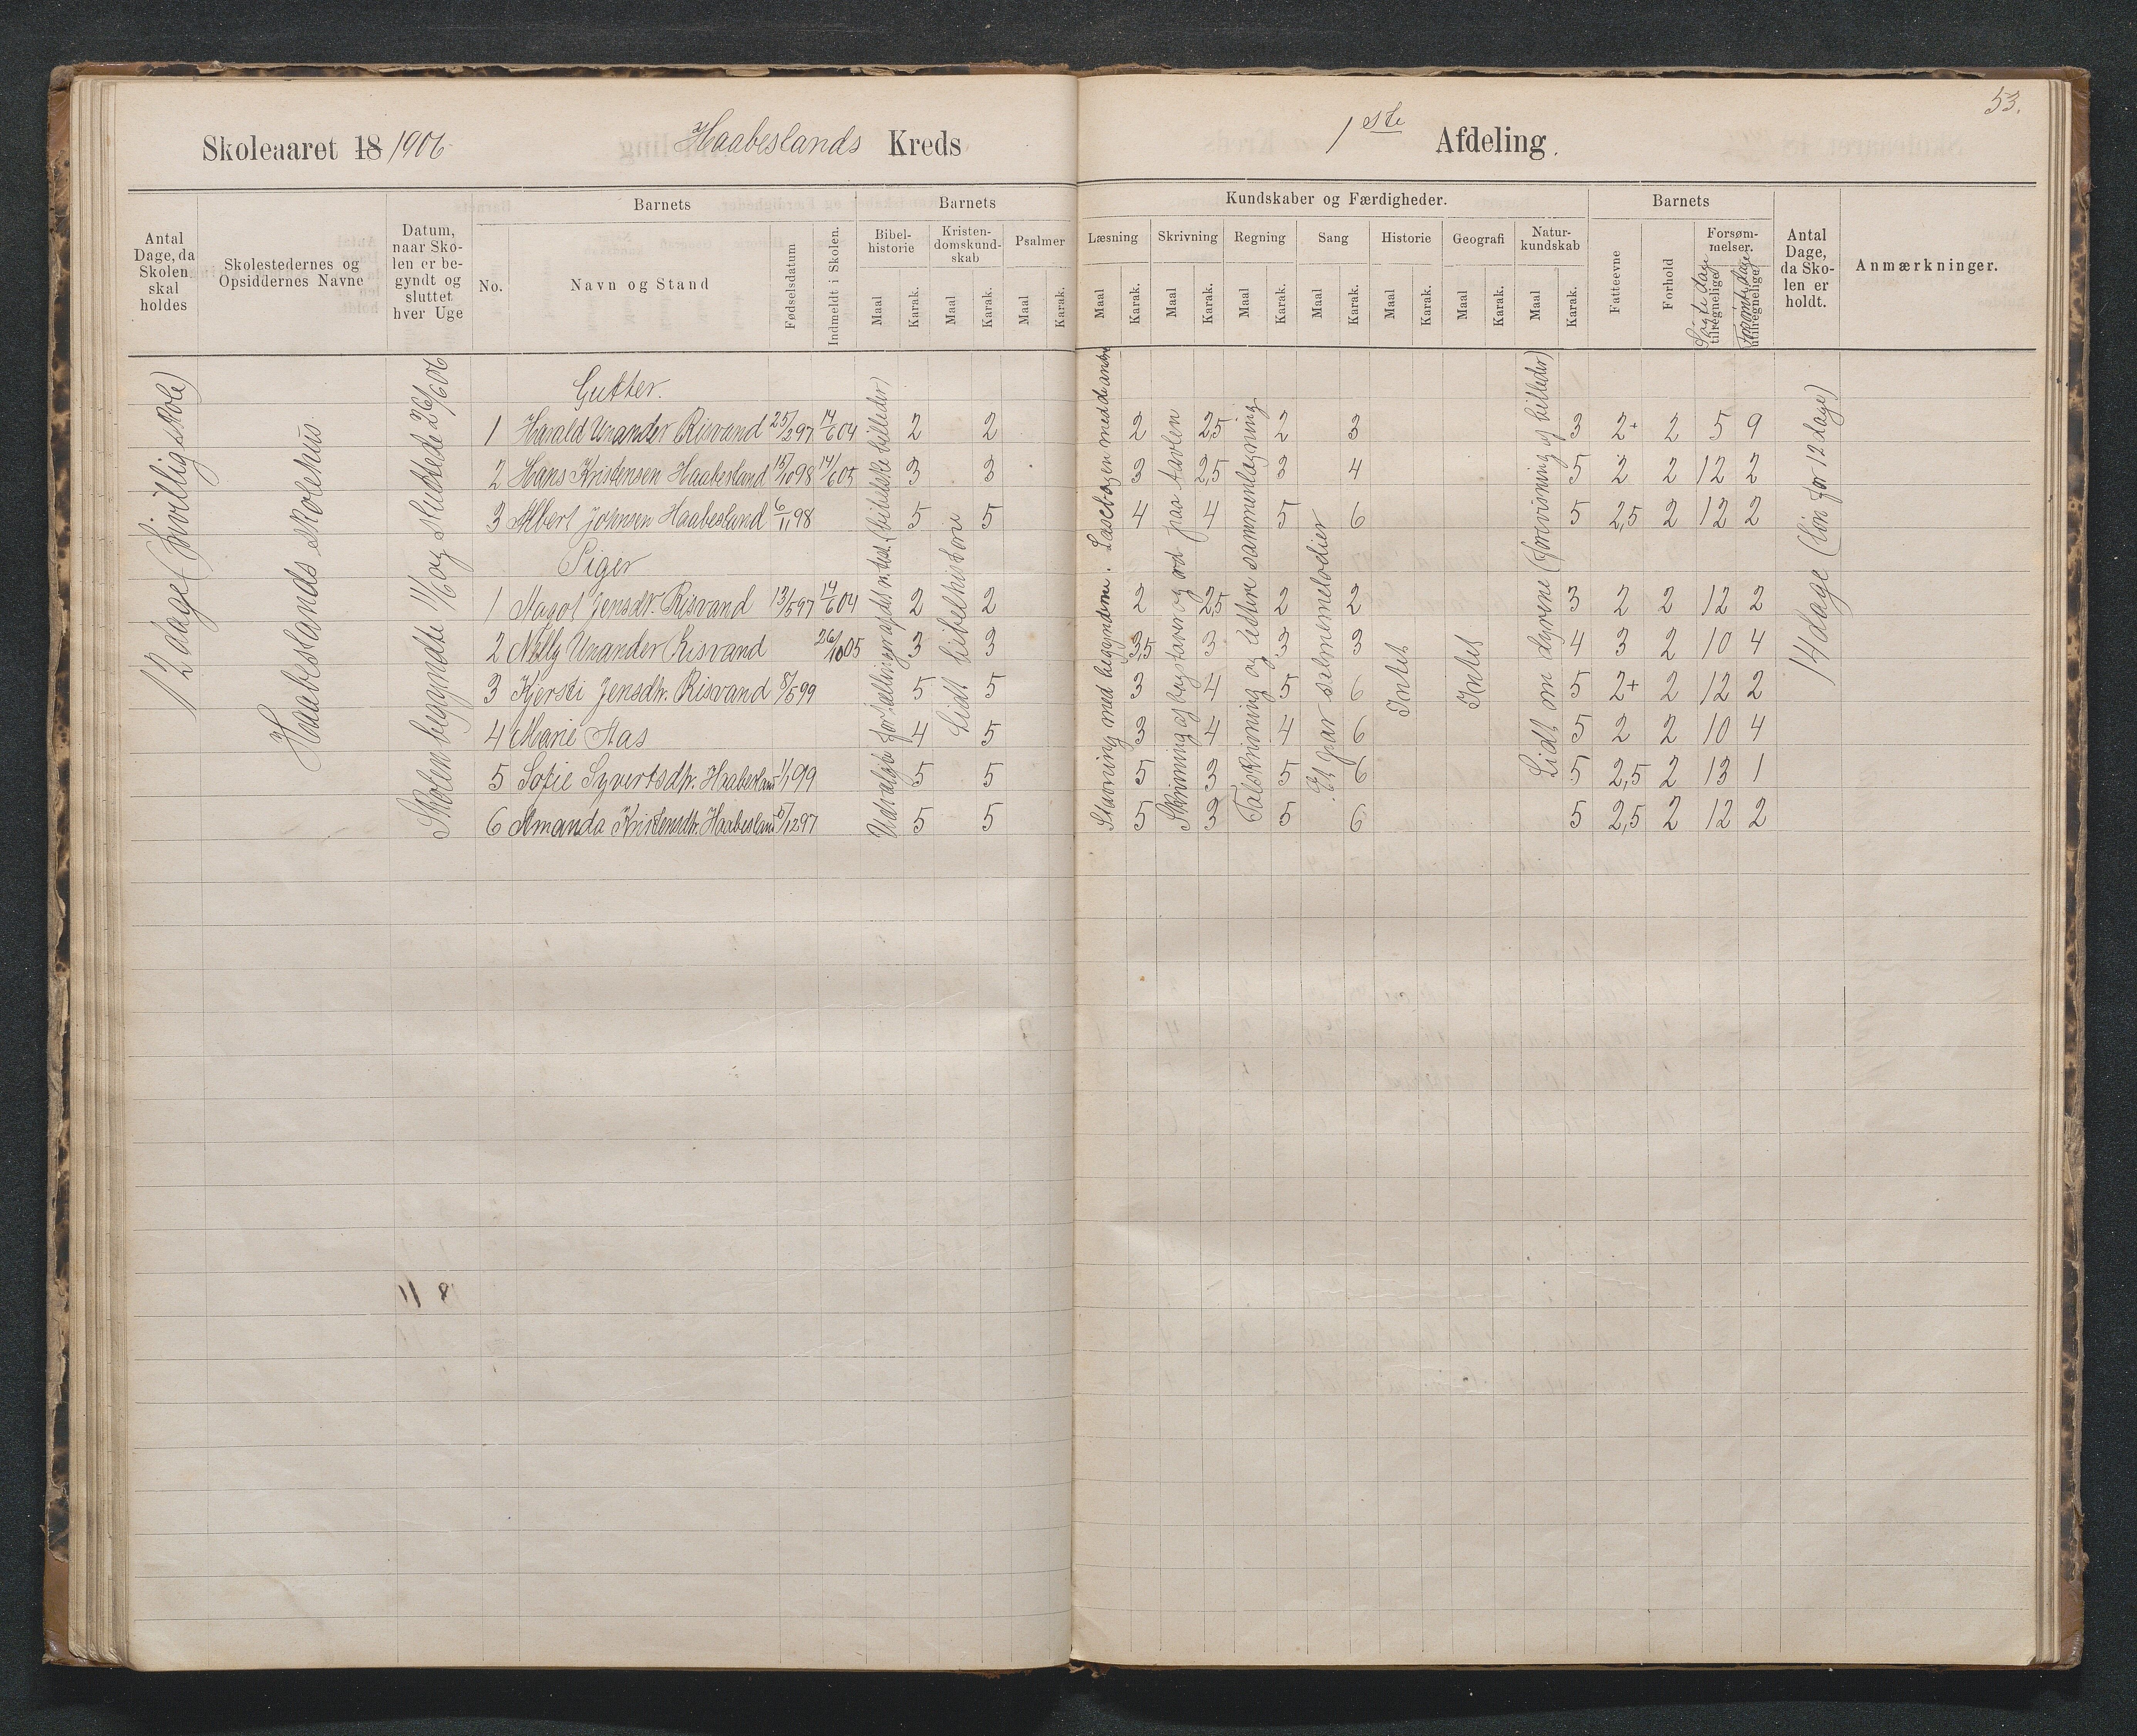 53.
Skoleaaret 18 1906 Haabeslands Kreds 1ste Afdeling.
Antal Dage, da Skolen skal holdes
Skolestedernes og Opsiddernes Navne
Datum, naar Skolen er begyndt og sluttet hver Uge
Barnets
No.
Navn og Stand
Fødselsdatum
Indmeldt i Skolen.
Barnets
Bibelhistorie Maal Karak.
Kristendomskundskab Maal Karak.
Psalmer Maal Karak.
Kundskaber og Færdigheder.
Læsning Maal Karak.
Skrivning Maal Karak.
Regning Maal Karak.
Sang Maal Karak.
Historie Maal Karak.
Geografi Maal Karak.
Naturkundskab Maal Karak.
Barnets
Fatteevne
Forhold
Forsømmelser.
Søgte dage tilregnelige
Forsømte dage utilregnelige
Antal Dage, da Skolen er holdt.
Anmærkninger.
12 dage (frivillig skole)
Haabeslands skolehus
Skolen begyndte 11/6 og sluttede 26/6 06
Udvalgte fortællinger af det n. test. (bibelske billeder)
Lidt bibelhistorie
Stavning med begynderne. Læsebogen med de andre
Skrivning af bogstaver og ord paa tavlen
Talskrivning og lettere sammenlægning
Et par salmemelodier
Intet
Intet
Lidt om dyrene (forevisning af billeder)
14 dage (løn for 12 dage)
Gutter.
1 Harald Unander Risvand 25/2 97 14/6 04 2 2 2 2,5 2 3 3 2+ 2 5 9
2 Hans Kristensen Haabesland 15/10 98 14/6 05 3 3 3 2,5 3 4 5 2 2 12 2
3 Albert Johnsen Haabesland 6/11 98 5 5 4 4 5 6 5 2,5 2 12 2
Piger
1 Aagot Jensdtr. Risvand 13/5 97 14/6 04 2 2 2 2,5 2 2 3 2 2 12 2
2 Nelly Unander Risvand 26/10 05 3 3 3,5 3 3 3 4 3 2 10 4
3 Kjersti Jensdtr. Risvand 8/5 99 5 5 3 4 5 6 5 2+ 2 12 2
4 Marie Aas 4 5 3 4 4 6 5 2 2 10 4
5 Sofie Syvertsdtr. Haabesland 1/1 99 5 5 5 3 5 6 5 2,5 2 13 1
6 Amanda Kristensdtr. Haabesland 5/12 97 5 5 5 3 5 6 5 2,5 2 12 2